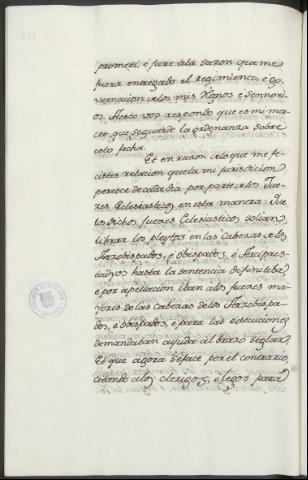 prometi, è jure ala sazon que me
fuera entregado el regimiento, è go-
vernacion delos mis Regnos è Sennori-
os. Aesto vos respondo que es mi mer-
cet que se guarde la ordenanza sobre
esto fecha.
Et en razon delo que me fe-
cistes relacion que la mi jurisdicion
peresce de cada dia por parte delos Jue-
ces Eclesiasticos en esta manera. Que
los dichos jueces Eclesiasticos solian
librar los pleytos en las Cabezas delos
Arzobispados, è obispados, è Arcipres-
tadgos hasta la sentencia definitiba
è por apellacion iban alos jueces ma-
yores delas cabezas delos Arzobispa-
dos, è obispados, è para las esecuciones
demandaban ayuda al brazo seglar.
Et que agora se face por el contrario
citando alos clerigos, è legos para